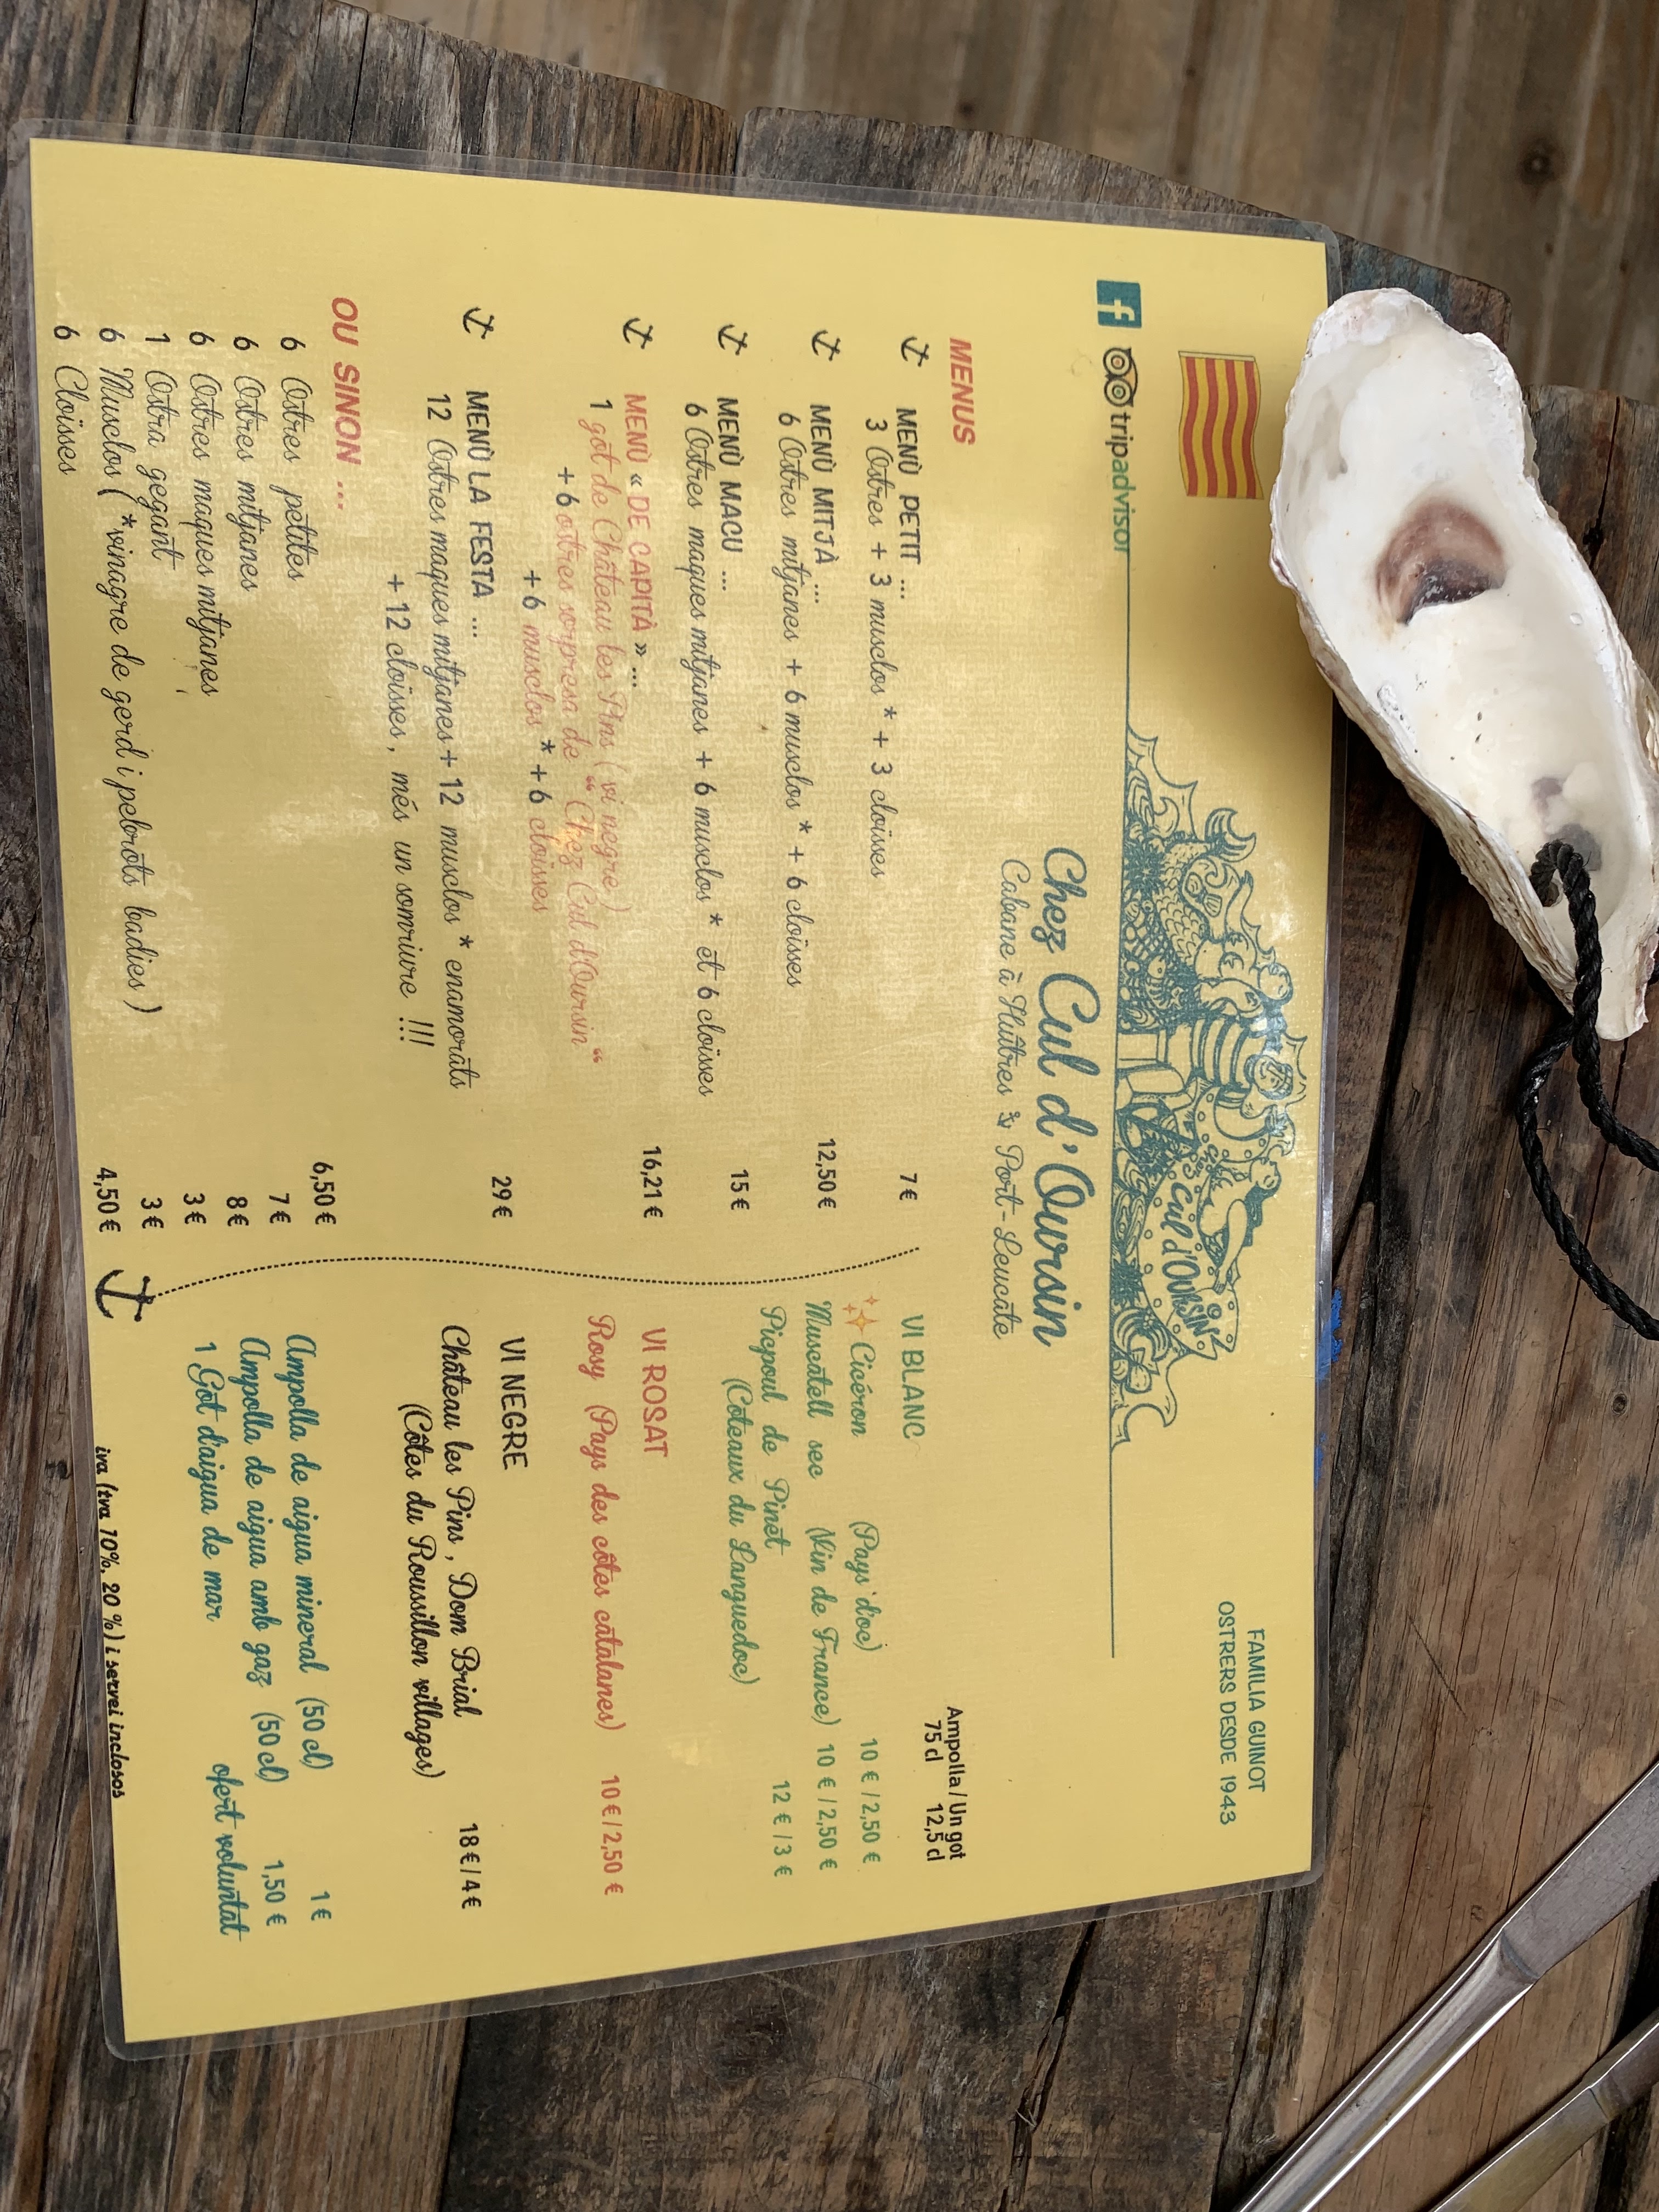 FAMILIA GUINOT
OSTRERS DESDE 1943
f tripadvisor
Chez Cul d'OURSIN
Chez Cul d'Oursin
Cabane à Huîtres Port-Leucate
MENUS
MENÙ PETIT ...
3 Ostres + 3 musclos * + 3 cloïsses 7 €
MENÙ MITJÀ ...
6 Ostres mitjanes + 6 musclos * + 6 cloïsses 12,50 €
MENÙ MACU ...
6 Ostres maques mitjanes + 6 musclos * et 6 cloïsses 15 €
MENÙ « DE CAPITÀ » ...
1 gôt de Château les Pins (vi negre) 16,21 €
+ 6 ostres sorpresa de “ Chez Cul d'Oursin “
+ 6 musclos * + 6 cloïsses
MENÙ LA FESTA ...
12 Ostres maques mitjanes + 12 musclos * enamorats 29 €
+ 12 cloïsses, més un somriure !!!
OU SINON ...
6 Ostres petites 6,50 €
6 Ostres mitjanes 7 €
6 Ostres maques mitjanes 8 €
1 Ostra gegant 3 €
6 Musclos ( *vinagre de gerd i pebrots badies ) 3 €
6 Cloïsses 4,50 €
Ampolla / Un got
75 cl 12,5 cl
VI BLANC
Cicéron (Pays d'oc) 10 € / 2,50 €
Muscatell sec (Vin de France) 10 € / 2,50 €
Picpoul de Pinet 12 € / 3 €
(Coteaux du Languedoc)
VI ROSAT
Rosy (Pays des côtes catalanes) 10 € / 2,50 €
VI NEGRE
Château les Pins, Dom Brial 18 € / 4 €
(Côtes du Roussillon villages)
Ampolla de aigua mineral (50 cl) 1 €
Ampolla de aigua amb gaz (50 cl) 1,50 €
1 Got d'aigua de mar ofert voluntat
iva (tva 10%, 20 %) i servei inclosos